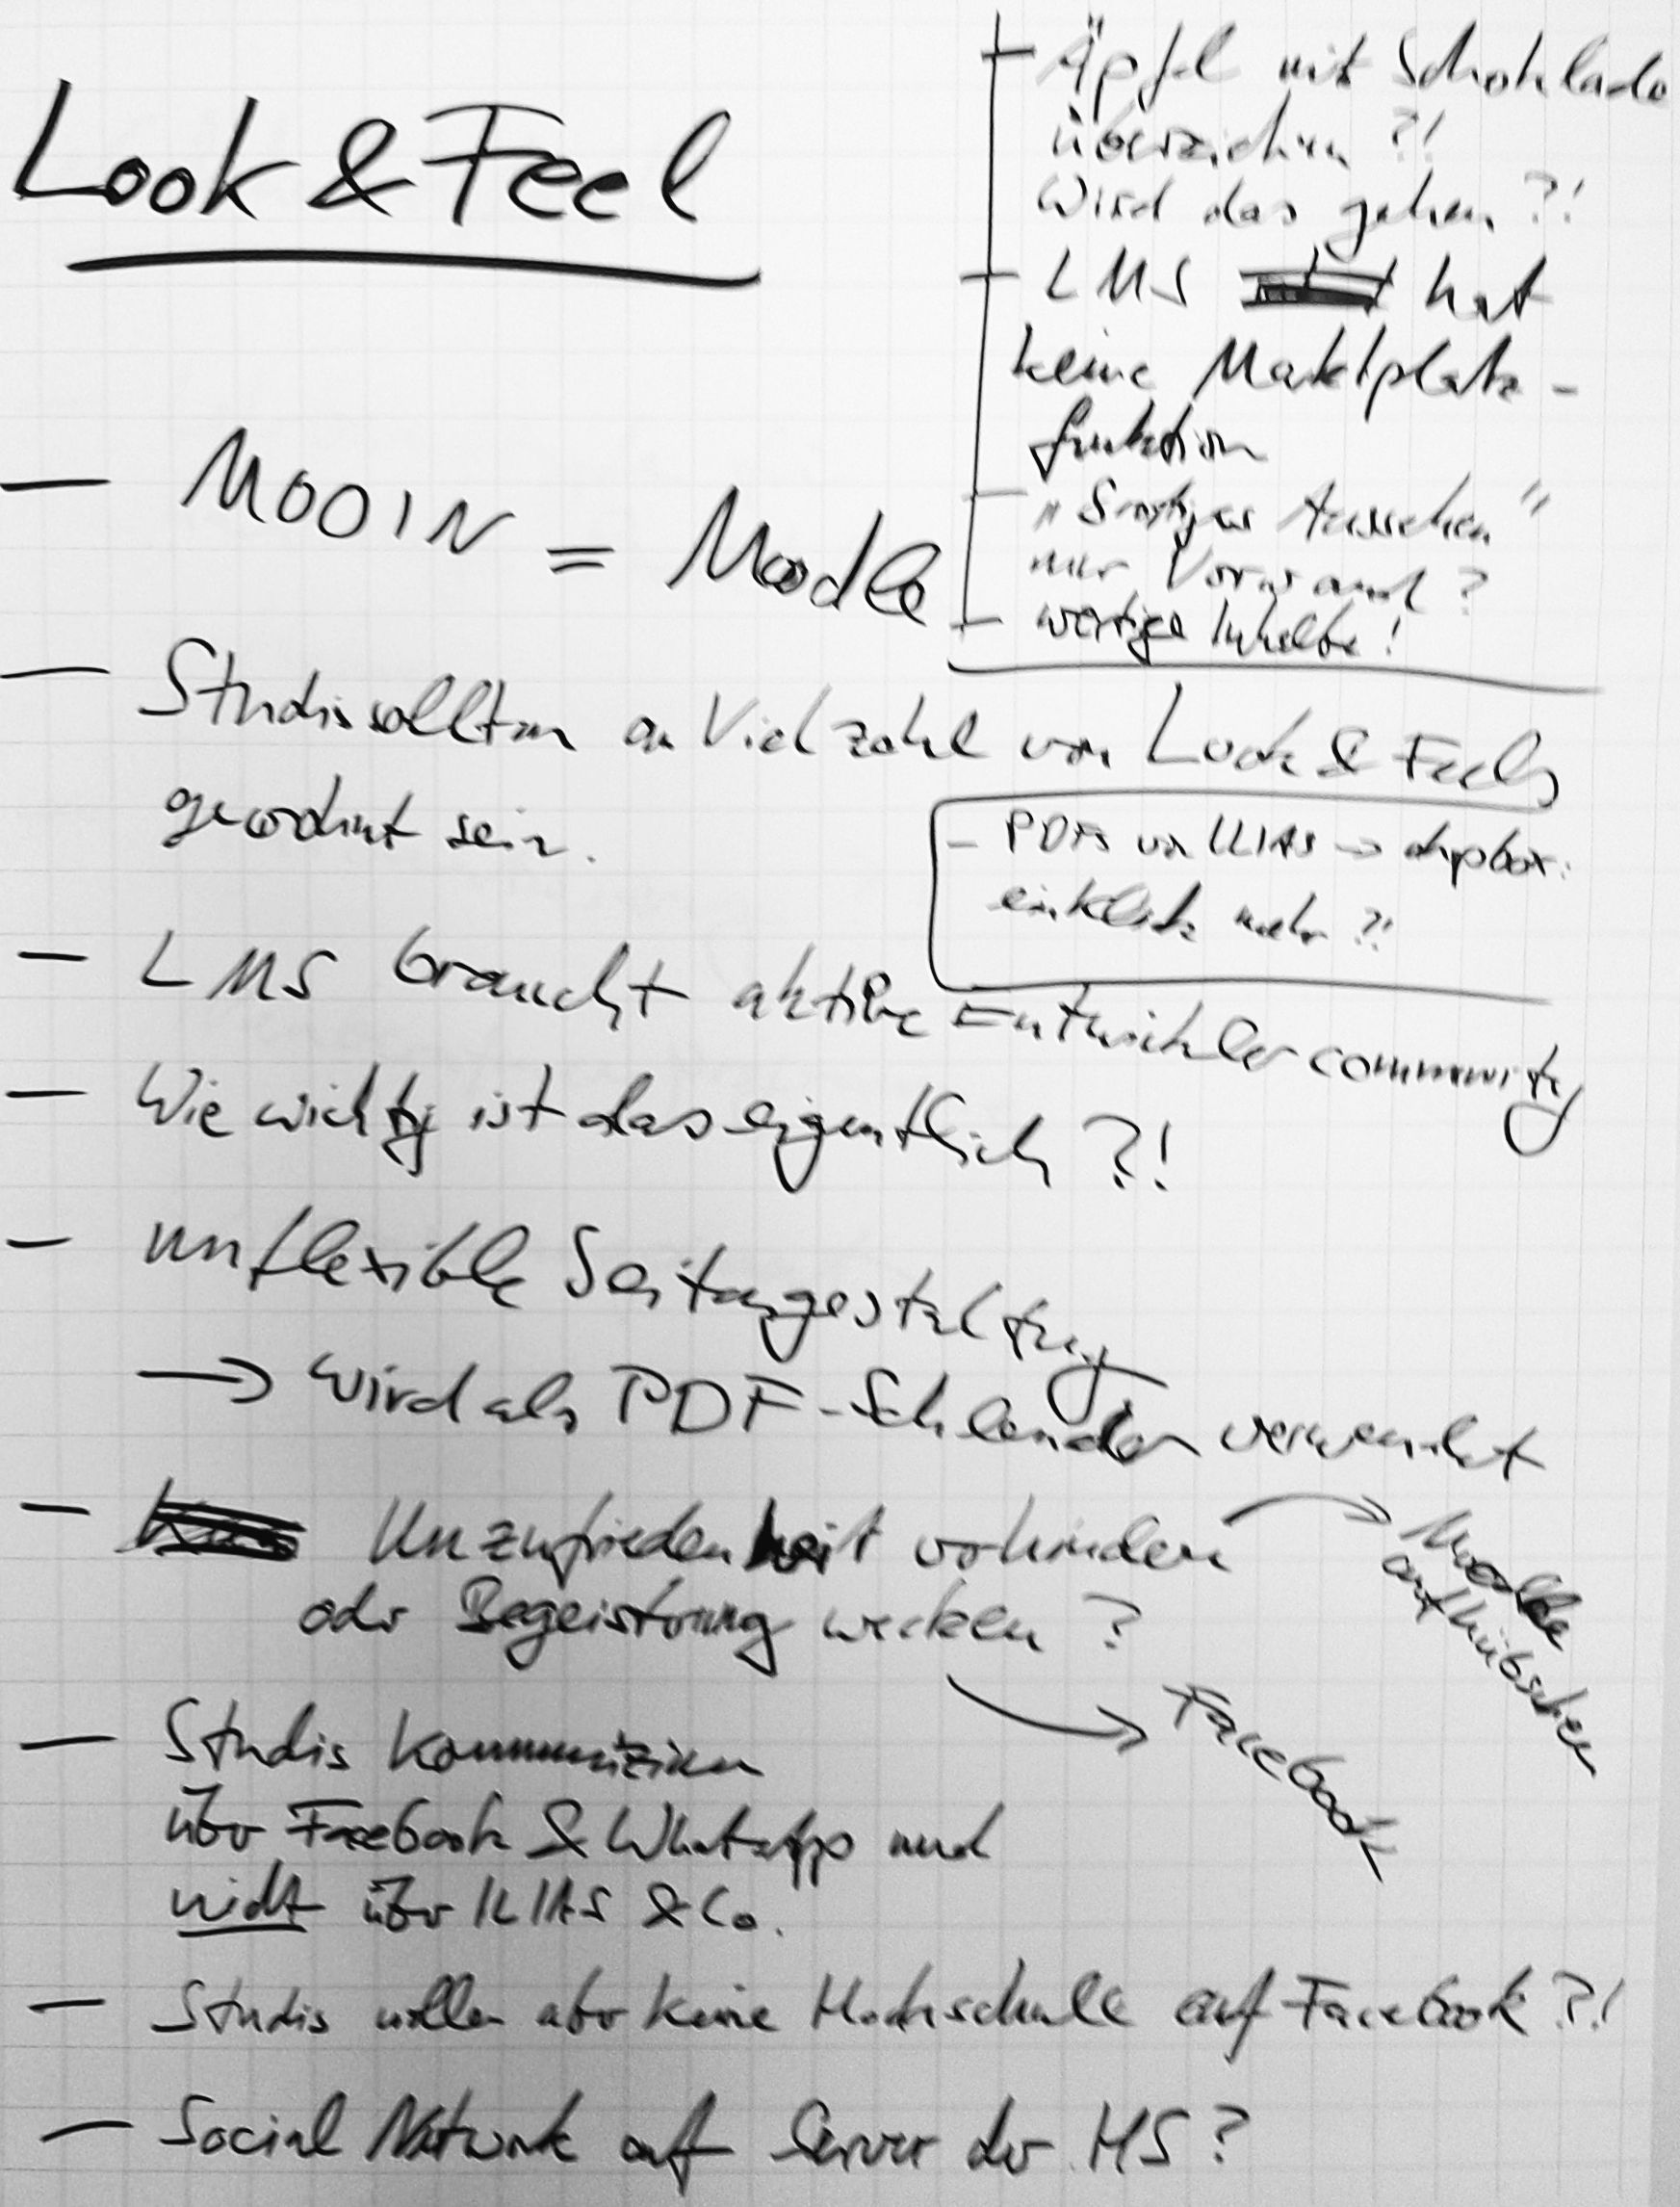 Look & Feel
- Äpfel mit Schokolade
überziehen ?!
Wird das gehen ?!
- LMS hat
keine Marktplatz-
funktion
- " Aussehen"
nur Vorwand ?
- wertige Inhalte !
- MOOIN = Moodle
- Studis sollten an Vielzahl von Look & Feels
gewöhnt sein.
- PDFs von ILIAS → dropbox:
ein Klick mehr ?!
- LMS braucht aktive Entwicklercommunity
- Wie wichtig ist das eigentlich ?!
- unflexible Seitengestaltung
→ wird als PDF-Schleuder verwendet
- Unzufriedenheit verhindern → Moodle
aufhübschen
oder Begeisterung wecken ?
→ Facebook
- Studis kommunizieren
über Facebook & WhatsApp und
nicht über ILIAS & Co.
- Studis wollen aber keine Hochschule auf Facebook ?!
- Social Network auf Server der HS ?